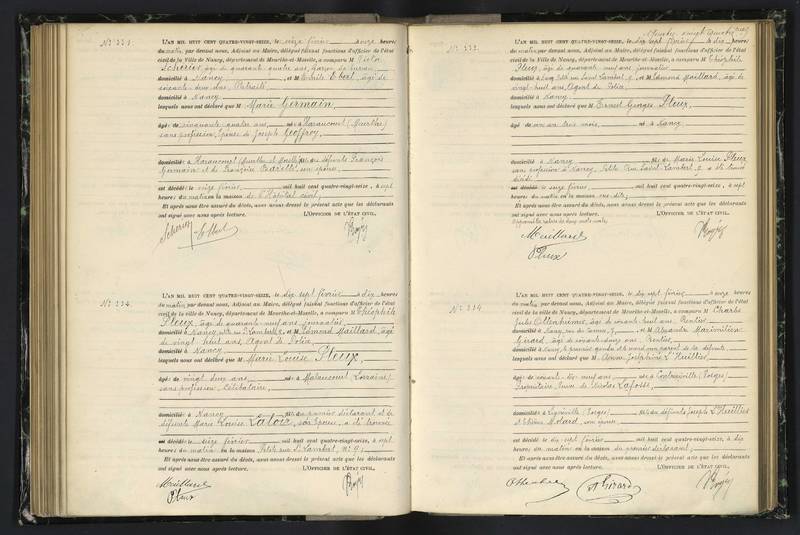 N° 331.
L'AN MIL HUIT CENT QUATRE-VINGT-SEIZE, le seize février à onze heures
du matin par devant nous, Adjoint au Maire, délégué faisant fonctions d'officier de l'état
civil de la Ville de Nancy, département de Meurthe-et-Moselle, a comparu M Victor
Scherier, âgé de quarante quatre ans, garçon de bureau
domicilié à Nancy, et M Emile Ebert, âgé de
soixante deux ans, Retraité
domicilié à Nancy
lesquels nous ont déclaré que M Marie Germain,
âgé de cinquante quatre ans né à Haraucourt (Meurthe)
sans profession, Epouse de Joseph Geoffroy,
domicilié à Haraucourt (Meurthe et Moselle) de défunts François
Germain et de Françoise son épouse,
est décédé le seize février mil huit cent quatre-vingt-seize, à sept
heures du matin en la maison de l'Hôpital civil,
Et après nous être assuré du décès, nous avons dressé le présent acte que les déclarants
ont signé avec nous après lecture. L'OFFICIER DE L'ÉTAT CIVIL,
N° 332.
L'AN MIL HUIT CENT QUATRE-VINGT-SEIZE, le dix sept février à dix heures
du matin par devant nous, Adjoint au Maire, délégué faisant fonctions d'officier de l'état
civil de la Ville de Nancy, département de Meurthe-et-Moselle, a comparu M Théophile
Pleux, âgé de quarante neuf ans, journalier
domicilié à Nancy, petite rue St Lambert, 9, et M Edmond Maillard, âgé de
vingt huit ans, Agent de Police
domicilié à Nancy
lesquels nous ont déclaré que M Marie Louise Pleux,
âgé de vingt deux ans né à (Lorraine)
sans profession, Célibataire,
domicilié à Nancy du premier déclarant et de
défunte Marie Louise son Epouse, a été trouvée
est décédé le seize février mil huit cent quatre-vingt-seize, à sept
heures du matin en la maison Petite rue St Lambert, N° 9,
Et après nous être assuré du décès, nous avons dressé le présent acte que les déclarants
ont signé avec nous après lecture. L'OFFICIER DE L'ÉTAT CIVIL,
Maillard
Pleux
N° 333.
L'AN MIL HUIT CENT QUATRE-VINGT-SEIZE, le dix sept février à dix heures
du matin par devant nous, Adjoint au Maire, délégué faisant fonctions d'officier de l'état
civil de la Ville de Nancy, département de Meurthe-et-Moselle, a comparu M Théophile
Pleux, âgé de quarante neuf ans, journalier
domicilié à Nancy, Petite rue Saint Lambert, 9, et M Edmond Maillard, âgé de
vingt huit ans, Agent de Police
domicilié à Nancy
lesquels nous ont déclaré que M Ernest Georges Pleux,
âgé de un an trois mois, né à Nancy
domicilié à Nancy de Marie Louise Pleux
sans profession à Nancy, Petite Rue Saint Lambert, 9, a été trouvé
décédé
est décédé le seize février, mil huit cent quatre-vingt-seize, à sept
heures du matin en la maison sus dite,
Et après nous être assuré du décès, nous avons dressé le présent acte que les déclarants
ont signé avec nous après lecture. L'OFFICIER DE L'ÉTAT CIVIL,
Maillard
Pleux
N° 334
L'AN MIL HUIT CENT QUATRE-VINGT-SEIZE, le dix sept février à onze heures
du matin par devant nous, Adjoint au Maire, délégué faisant fonctions d'officier de l'état
civil de la Ville de Nancy, département de Meurthe-et-Moselle, a comparu M Charles
Jules Ottenheimer, âgé de soixante huit ans, Rentier
domicilié à Nancy, et M Alexandre Maximilien
Girard, âgé de soixante douze ans, Rentier
domicilié à Nancy, le premier gendre et le second non parent de la défunte
lesquels nous ont déclaré que M Joséphine L'Huillier
âgé de soixante dix neuf ans né à (Vosges)
Propriétaire, Veuve de Nicolas Lafosse,
domicilié à (Vosges) de défunts Joseph L'Huillier
et Molard, son épouse,
est décédé le dix sept février, mil huit cent quatre-vingt-seize, à dix
heures du matin en la maison du premier déclarant,
Et après nous être assuré du décès, nous avons dressé le présent acte que les déclarants
ont signé avec nous après lecture. L'OFFICIER DE L'ÉTAT CIVIL,
Girard